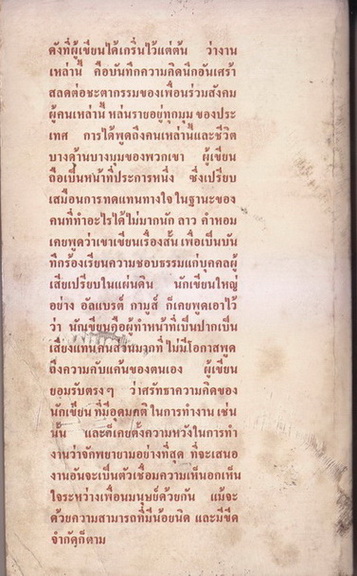 ดังที่ผู้เขียนได้เกริ่นไว้แต่ต้น ว่างาน
เหล่านี้ คือบันทึกความคิดนึกอันเศร้า
สลดต่อชะตากรรมของเพื่อนร่วมสังคม
ผู้คนเหล่านี้ หล่นรายอยู่ทุกมุม ของประ
เทศ การได้พูดถึงคนเหล่านี้และชีวิต
บางด้านบางมุมของพวกเขา ผู้เขียน
ถือเป็นหน้าที่ประการหนึ่ง ซึ่งเปรียบ
เสมือนการทดแทนทางใจ ในฐานะของ
คนที่ทำอะไรได้ไม่มากนัก ลาว คำหอม
เคยพูดว่าเขาเขียนเรื่องสั้น เพื่อเป็นบัน
ทึกร้องเรียนความชอบธรรมแก่บุคคลผู้
เสียเปรียบในแผ่นดิน นักเขียนใหญ่
อย่าง อัลแบรต์ กามูส์ ก็เคยพูดเอาไว้
ว่า นักเขียนคือผู้ทำหน้าที่เป็นปากเป็น
เสียงแทนคนส่วนมากที่ ไม่มีโอกาสพูด
ถึงความคับแค้นของตนเอง ผู้เขียน
ยอมรับตรงๆ ว่าศรัทธาความคิดของ
นักเขียน ที่มีอุดมคติ ในการทำงาน เช่น
นั้น และก็เคยตั้งความหวังในการทำ
งานว่าจักพยายามอย่างที่สุด ที่จะเสนอ
งานอันจะเป็นตัวเชื่อมความเห็นอกเห็น
ใจระหว่างเพื่อนมนุษย์ด้วยกัน แม้จะ
ด้วยความสามารถที่มีน้อยนิด และมีขีด
จำกัดก็ตาม